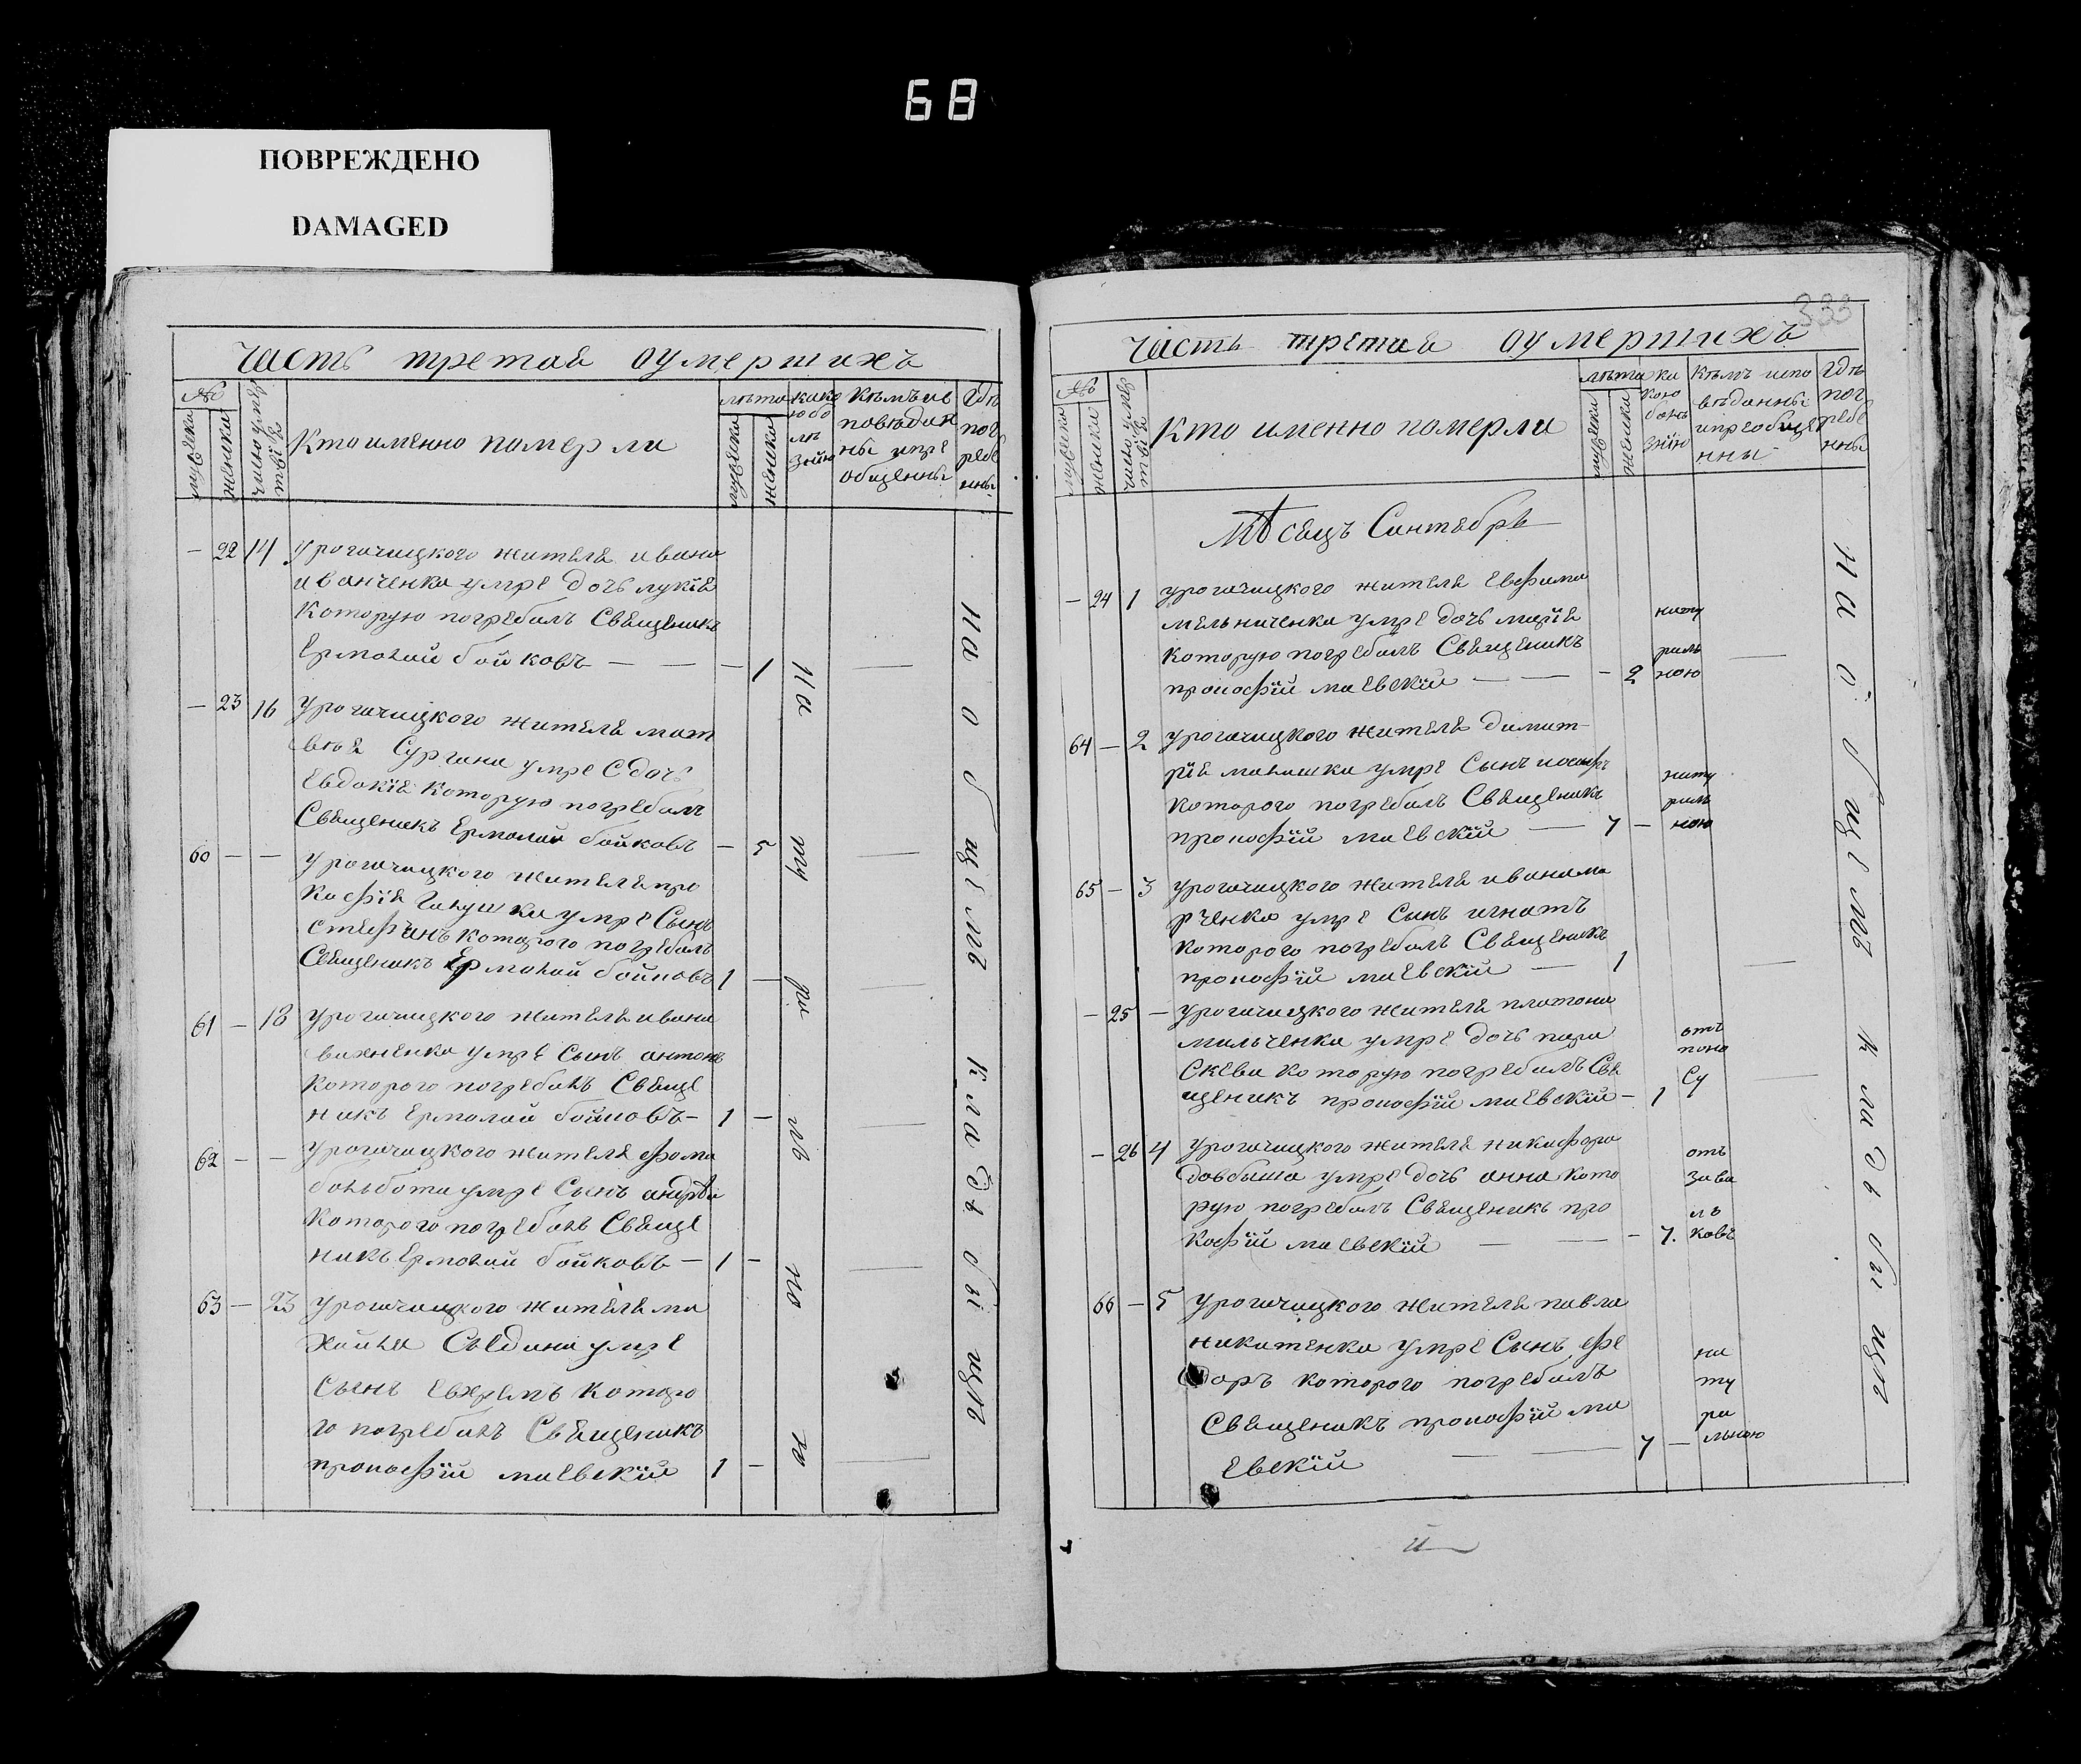 68
ПОВРЕЖДЕНО
DAMAGED
часть третая оумершихъ
№
мужеска
женска
число умертвія
Кто именно померли
лѣта
мужеска
женска
какою болѣзнію
Кѣмъ исповѣдин
ны и прі
общенны
Гдѣ
пог
ребе
нны
22 14 урогачицкого жителя ивана
иванченка умре дочь лукія
Которую погребалъ Священикъ
Ермолай бойковъ — — — 1
— 23 16 Урогачицкого жителя мат
вѣя Сургана умре Едочь
Евдокія которую погребалъ
Священикъ Ермолай бойковъ — 5
60 — — Урогачицкого жителя про
кофія Галушка умре Сынъ
стефанъ которого погребалъ
Священикъ Ермолай бойковъ 1 —
61 — 18 Урогачицкого жителя ивана
вахненка умре Сынъ антонъ
которого погребалъ Свяще
никъ Ермолай бойковъ — 1 —
62 — — Урогачицкого жителя фома
больбота умре Сынъ андрѣй
Которого погребалъ Свяще
никъ Ермолай бойковъ — 1 —
63 — 23 Урогачицкого жителя ми
хайла умре
Сынъ Евхремъ которо
го погребалъ Священикъ
прокофій маевскій 1 —
На ту ра ль но ю
На о бщемъ кладьбищѣ
333
часть третая оумершихъ
№
мужеска
женска
число умертвія
Кто именно померли
лѣта
мужеска
женска
ка
кою
болѣ
знію
Кѣмъ испо
вѣданны
и преобще
нны
Гдѣ
пог
ребе
нны
Мѣсяцъ Сентябрь
— 24 1 урогачицкого жителя Евфима
мельниченка умре дочь марія
которую погребалъ Священикъ
прокофій маевскій — — — 2
нату
раль
ною
64 — 2 урогачицкого жителя димит-
рія малашка умре Сынъ иосифъ
которого погребалъ Священикъ
прокофій маевскій — 7 —
нату
раль
ною
65 — 3 урогачицкого жителя ивана ма
рченка умре Сынъ игнатъ
которого погребалъ Священикъ
прокофій маевскій — 1
— 25 — урогачицкого жителя платона
мильченка умре дочь пара
Скева которую погребалъ Свя
щеникъ прокофій маевскій — 1
отъ
поно
Су
— 26 4 урогачицкого жителя никифора
довбыша умре дочь анна кото
рую погребалъ Священикъ про
кофій маевскій — — — 7.
отъ
зава
лъ
ковъ
66 — 5 Урогачицкого жителя павла
никитенка умре Сынъ фе
доръ которого погребалъ
Священикъ прокофій ма
евскій — — 7 —
на
ту
ра
льною
На о бщемъ кладьбищѣ